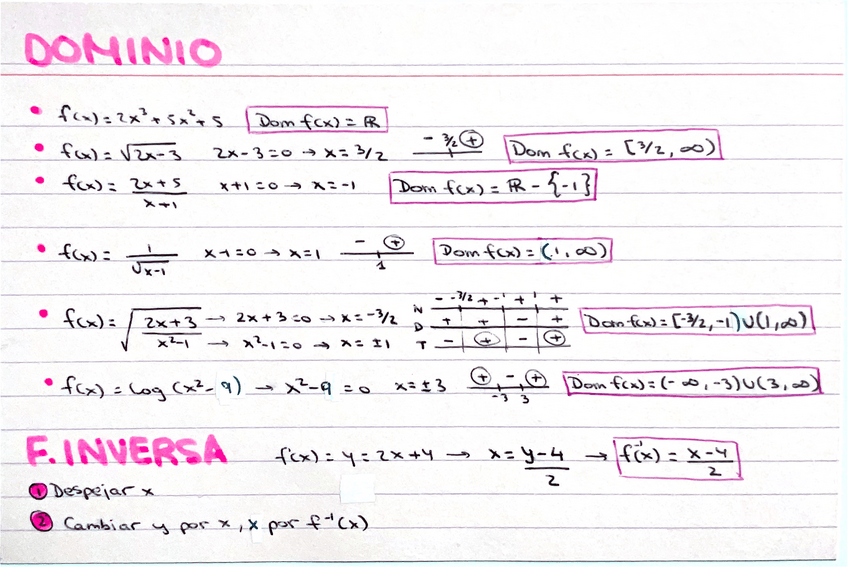 DOMINIO
• f(x) = 2x³ + 5x² + 5 Dom f(x) = ℝ
• f(x) = √(2x-3) 2x-3=0 → x = 3/2 - 3/2 + Dom f(x) = [3/2, ∞)
• f(x) = (2x+5)/(x+1) x+1=0 → x=-1 Dom f(x) = ℝ - {-1}
• f(x) = 1/√(x-1) x-1=0 → x=1 - + 1 Dom f(x) = (1, ∞)
• f(x) = √((2x+3)/(x²-1)) → 2x+3=0 → x=-3/2 → x²-1=0 → x=±1 Dom f(x) = [-3/2, -1) ∪ (1, ∞)
- -3/2 + -1 + 1 +
N
D + + - +
T - + - +
• f(x) = log(x²-9) → x²-9=0 x=±3 + - + -3 3 Dom f(x) = (-∞, -3) ∪ (3, ∞)
F. INVERSA f(x) = y = 2x+4 → x = (y-4)/2 → f⁻¹(x) = (x-4)/2
1 Despejar x
2 Cambiar y por x, x por f⁻¹(x)